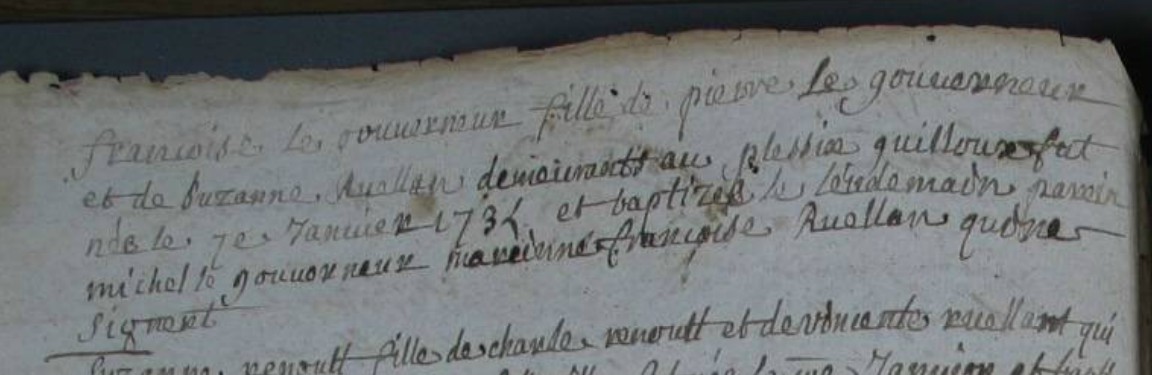 francoise le gouverneur fille de pierre Le gouuerneur
et de Suzanne Ruellan demeurants au plessix guilloux fut
née le 7e Januier 1734 et baptizée le lendemain parein
michel le gouuerneur mareinne françoise Ruellan qui ne
Signent
Suzanne renoult fille de charle renoult et de vincente ruellant qui
Januier et bapt